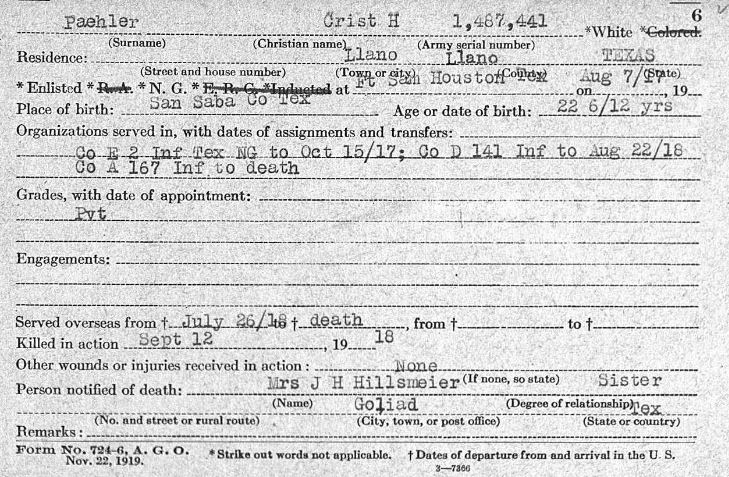 6
Paehler Crist H 1,487,441 *White *Colored.
(Surname) (Christian name) (Army serial number)
Residence: Llano Llano TEXAS
(Street and house number) (Town or city) (County) (State)
*Enlisted *R. A. *N. G. *E. R. C. *Inducted at Ft Sam Houston Tex on Aug 7/17, 19
Place of birth: San Saba Co Tex Age or date of birth: 22 6/12 yrs
Organizations served in, with dates of assignments and transfers:
Co E 2 Inf Tex NG to Oct 15/17; Co D 141 Inf to Aug 22/18
Co A 167 Inf to death
Grades, with date of appointment:
Pvt
Engagements:
Served overseas from † July 26/18 to † death, from † to †
Killed in action Sept 12, 19 18
Other wounds or injuries received in action: None
Person notified of death: Mrs J H Hillsmeier (If none, so state) Sister
(Name) (Degree of relationship)
Goliad Tex
(No. and street or rural route) (City, town, or post office) (State or country)
Remarks:
Form No. 724-6, A. G. O. *Strike out words not applicable. †Dates of departure from and arrival in the U. S.
Nov. 22, 1919. 3—7366